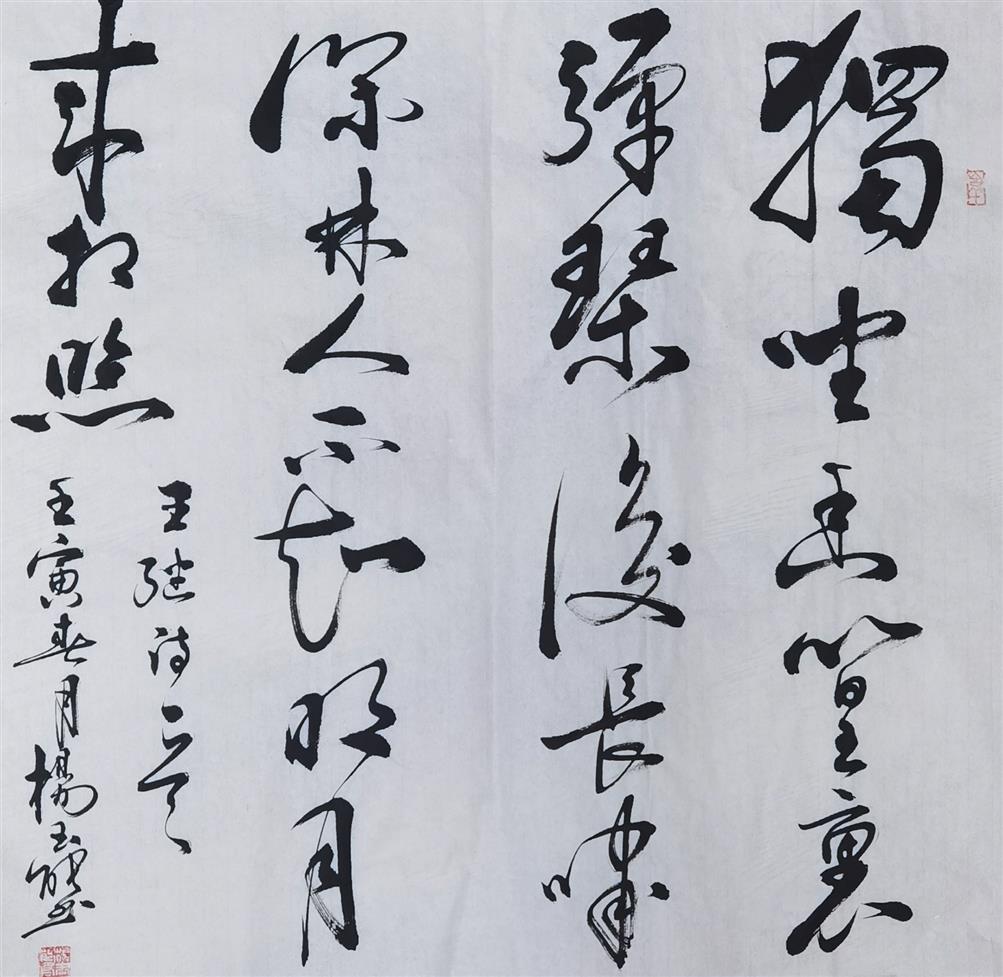 獨坐幽篁裏
彈琴復長嘯
深林人不知明月
來相照
王維詩一首
壬寅春月楊玉